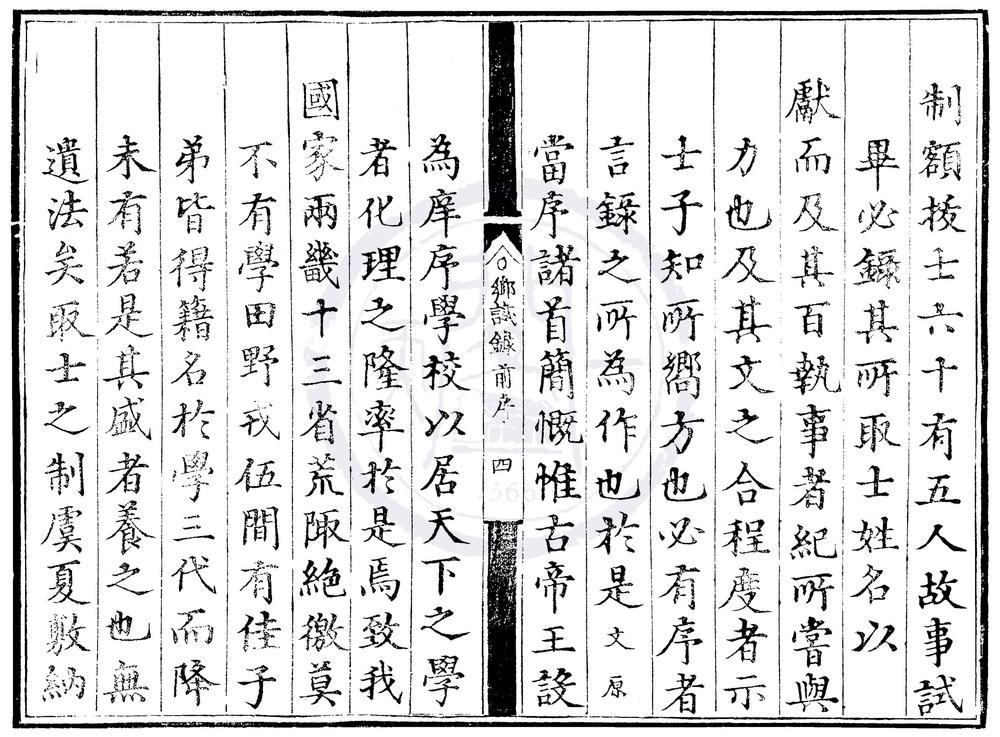 制額挍士六十有五人故事試
畢必錄其所取士姓名以
獻而及其百執事者紀所嘗與
力也及其文之合程度者示
士子知所嚮方也必有序者
言錄之所為作也於是文原
當序諸首簡慨惟古帝王設
鄉試錄 前序 四
為庠序學校以居天下之學
者化理之隆率於是焉致我
國家兩畿十三省荒陬絶徼莫
不有學田野戎伍間有佳子
弟皆得籍名於學三代而降
未有若是其盛者養之也無
遺法矣取士之制虞夏敷納